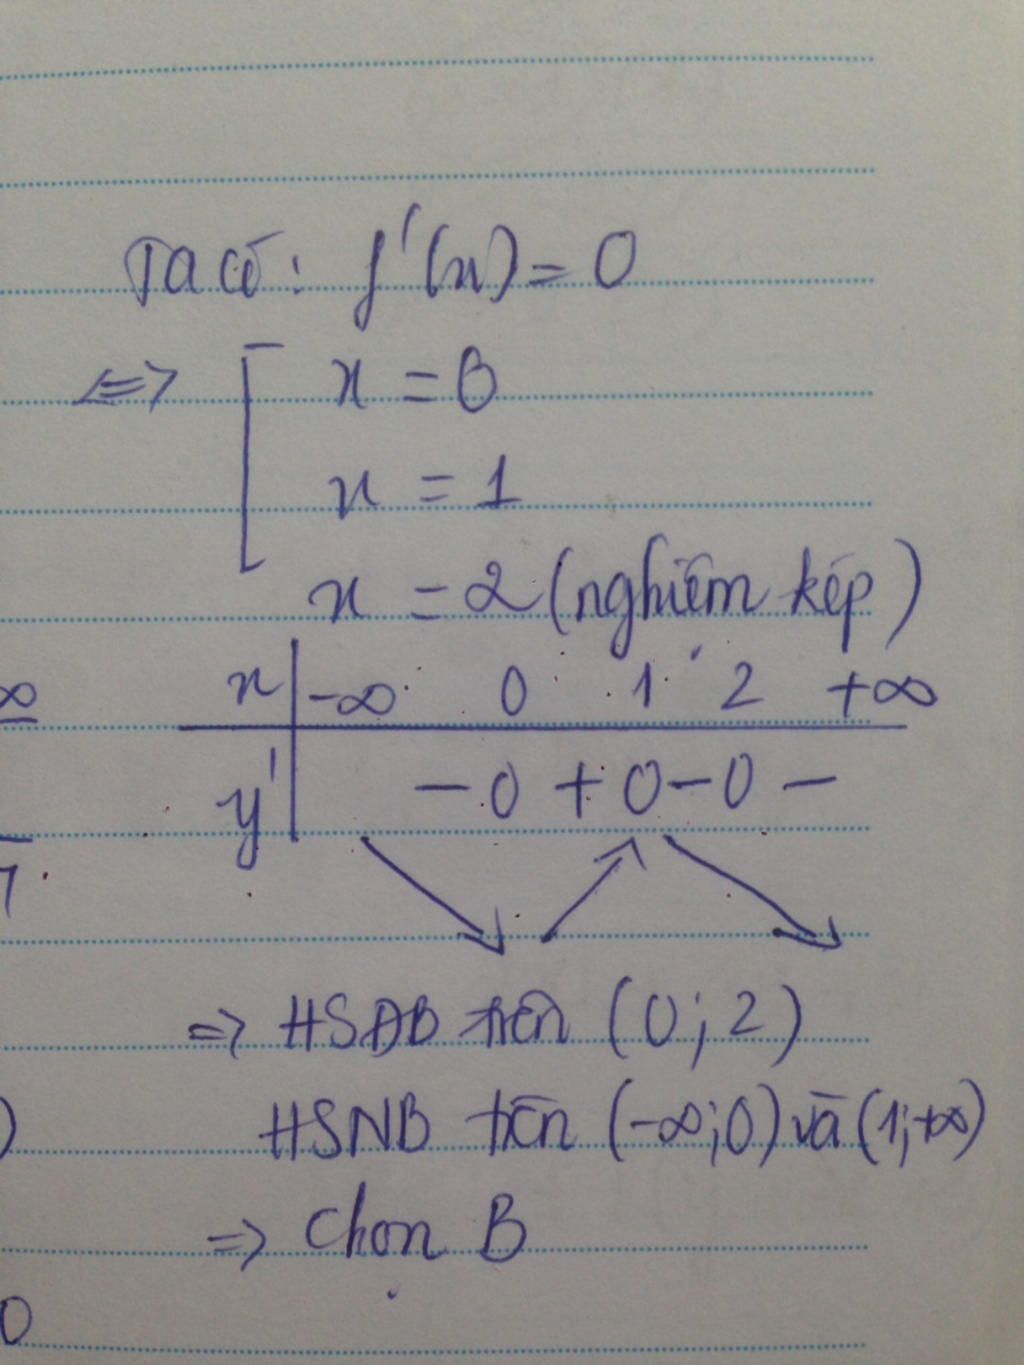 Ta có: f'(x) = 0
<=> [ x = 0
x = 1
x = 2 (nghiệm kép)
∞ x | -∞ 0 1 2 +∞
y' | - 0 + 0 - 0 -
=> HSĐB trên (0; 2)
) HSNB trên (-∞; 0) và (1; +∞)
=> Chọn B
0